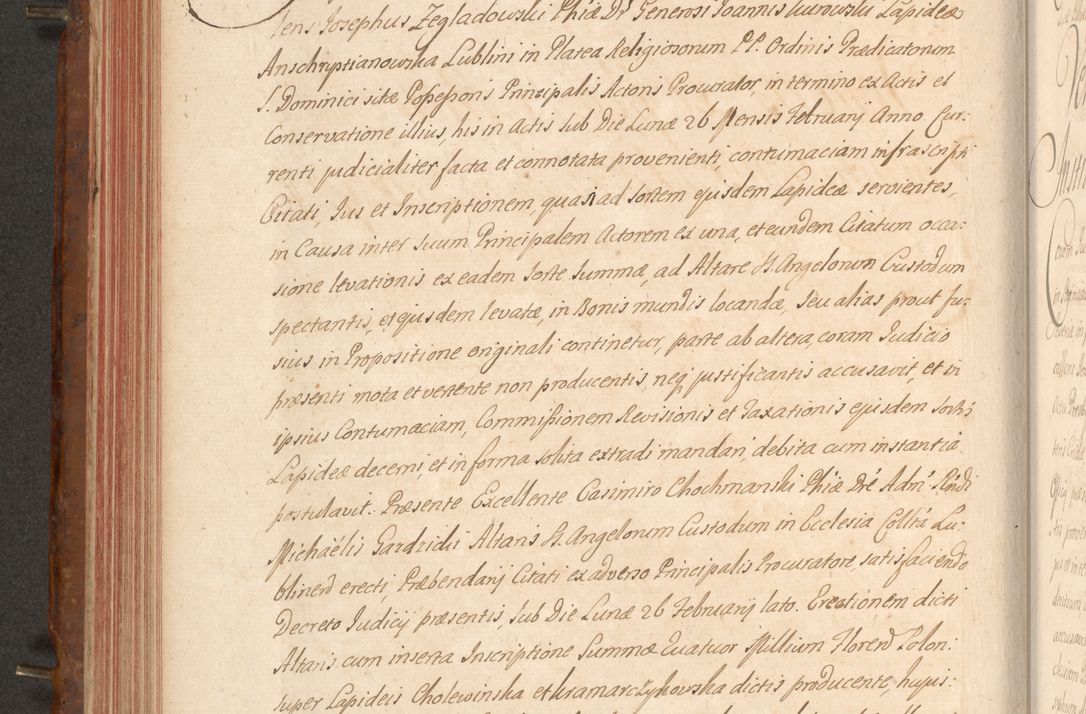 lens Josephus Zegladowski Phiæ Dr Generosi Joannis Kurowski Lapideæ
Anschryptianowska Lublini in Platea Religiosorum PP. Ordinis Prædicatorum
S. Dominici sitæ Possessoris Principalis Actoris Procurator in termino ex Actis et
Conservatione illius, his in Actis sub Die Lunæ 26 Mensis Februarij Anno Cur:
renti judicialiter facta et connotata provenienti, contumaciam infrascripti
Citati, Jus et Inscriptionem, quasi ad sortem ejusdem Lapideæ servientes,
in Causa inter suum Principalem Actorem ex una, et eundem Citatum occa:
sione levationis ex eadem sorte summæ, ad Altare SS. Angelorum Custodum
spectantis, ejusdem levatæ, in Bonis mundis locandæ, seu alias prout fu:
sius in Propositione originali continetur, parte ab altera, coram Judicio
præsenti mota et vertente non producentis, neq justificantis accusavit, et in
ipsius Contumaciam, Commissionem Revisionis et Taxationis ejusdem sortis
Lapideæ decerni, et in forma solita extradi mandari, debita cum instantia
postulavit. Præsente Excellente Casimiro Chochmanski Phiæ Dre Adm Rndi
Michaëlis Gardzidii Altaris SS. Angelorum Custodum in Ecclesia Collta Lu:
blinen erecti, Præbendarij Citati ex adverso Principalis Procuratore, satisfaciendo
Decreto Judicij præsentis, sub Die Lunæ 26 Februarij lato. Erectionem dicti
Altaris cum inserta Inscriptione Summæ Quatuor Millium Floren Polon:
super Lapideis Cholewinska et Kramarczykowska dictis producente, hujus: